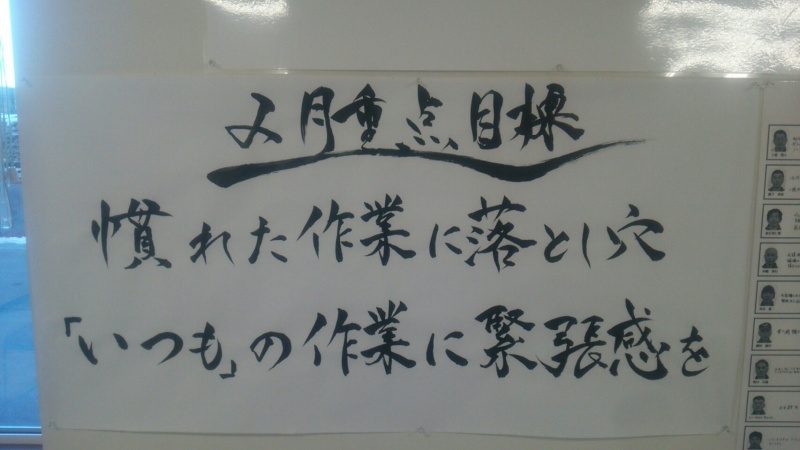 2月重点目標
慣れた作業に落とし穴
「いつも」の作業に緊張感を